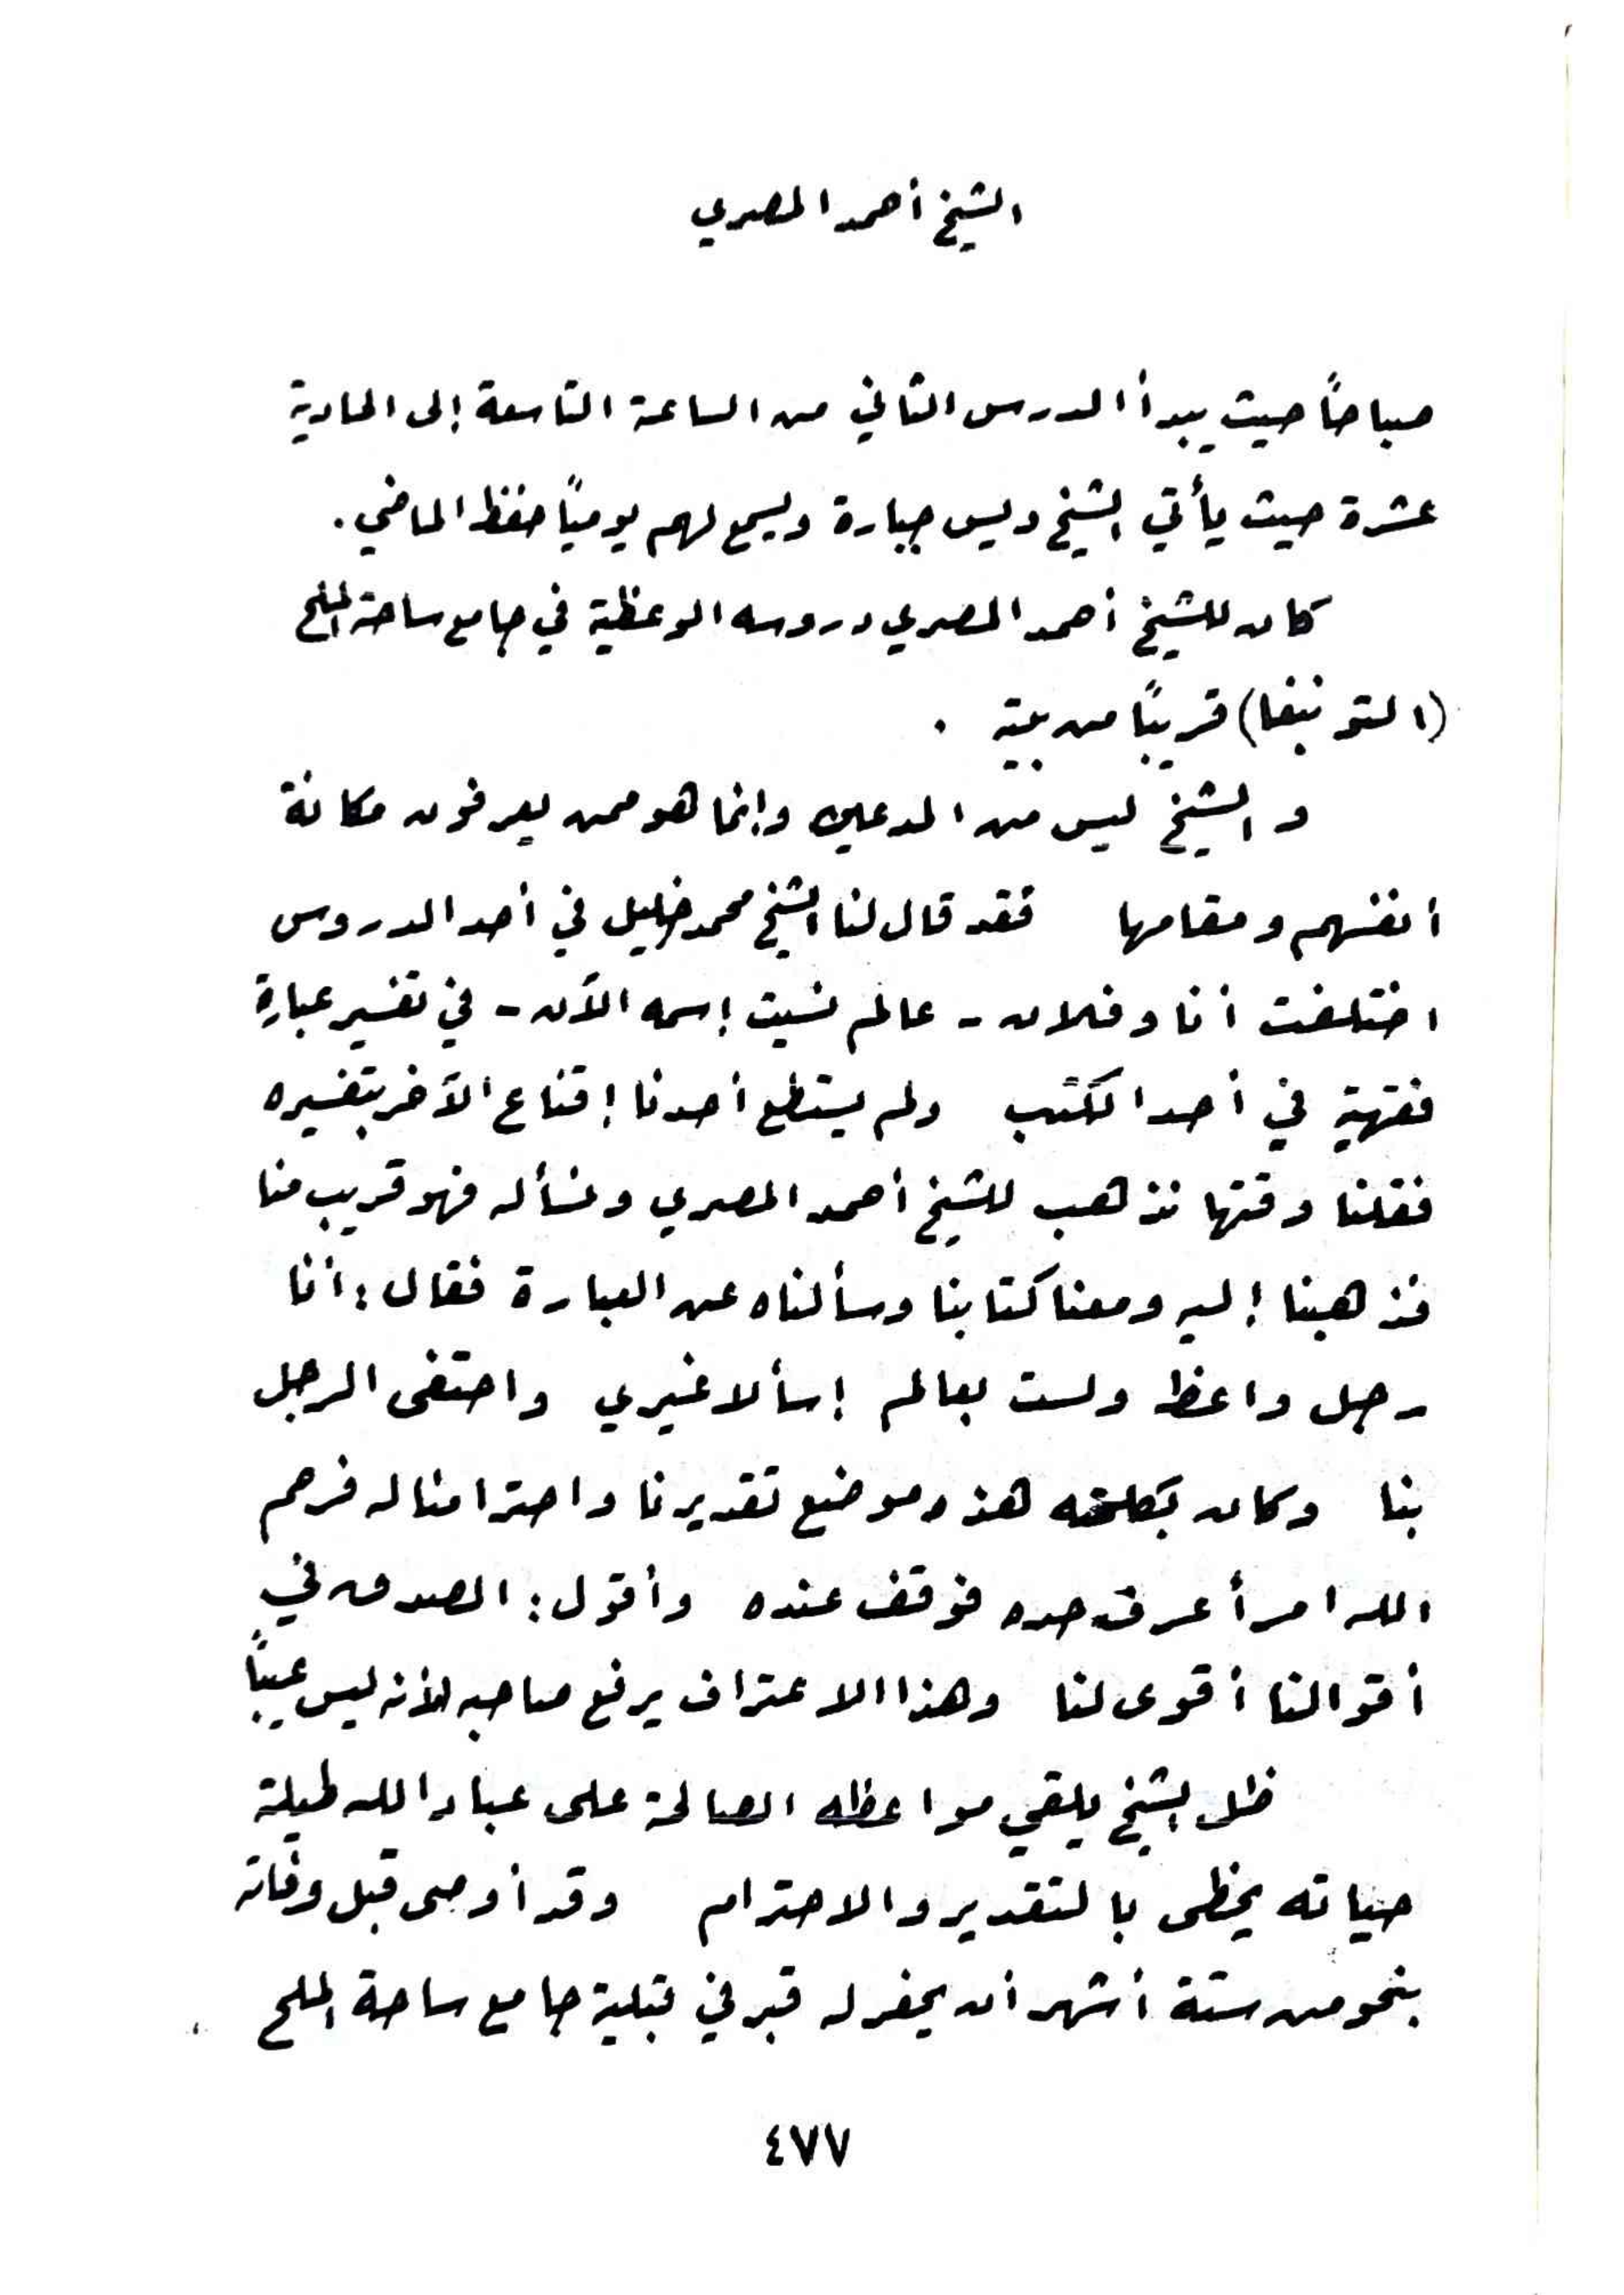 الشيخ أحمد المصري
صباحاً حيث يبدأ الدرس الثاني من الساعة التاسعة إلى الحادية
عشرة حيث يأتي الشيخ ديس جبارة ويسمع لهم يومياً حفظ الماضي .
كان للشيخ أحمد المصري دروسه الوعظية في جامع ساحة الملح
(التونبغا) قريباً من بيته .
والشيخ ليس من المدعين وإنما هو ممن يعرفون مكانة
أنفسهم ومقامها فقد قال لنا الشيخ محمد خليل في أحد الدروس
اختلفت أنا وفلان - عالم نسيت إسمه الآن - في تفسير عبارة
فقهية في أحد الكتب ولم يستطع أحدنا إقناع الآخر بتفسيره
فقلنا وقتها نذهب للشيخ أحمد المصري ونسأله فهو قريب منا
فذهبنا إليه ومعنا كتابنا وسألناه عن العبارة فقال : أنا
رجل واعظ ولست بعالم إسألا غيري واحتفى الرجل
بنا وكان بكلمته هذه موضع تقديرنا واحترامنا له فرحم
الله امرأ عرف حده فوقف عنده وأقول : الصدق في
أقوالنا أقوى لنا وهذا الاعتراف يرفع صاحبه لأنه ليس عيباً
ظل الشيخ يلقي مواعظه الصالحة على عباد الله طيلة
حياته يحظى بالتقدير والاحترام وقد أوصى قبل وفاته
بنحو من ستة أشهر أن يحفر له قبر في قبلية جامع ساحة الملح
٤٧٧